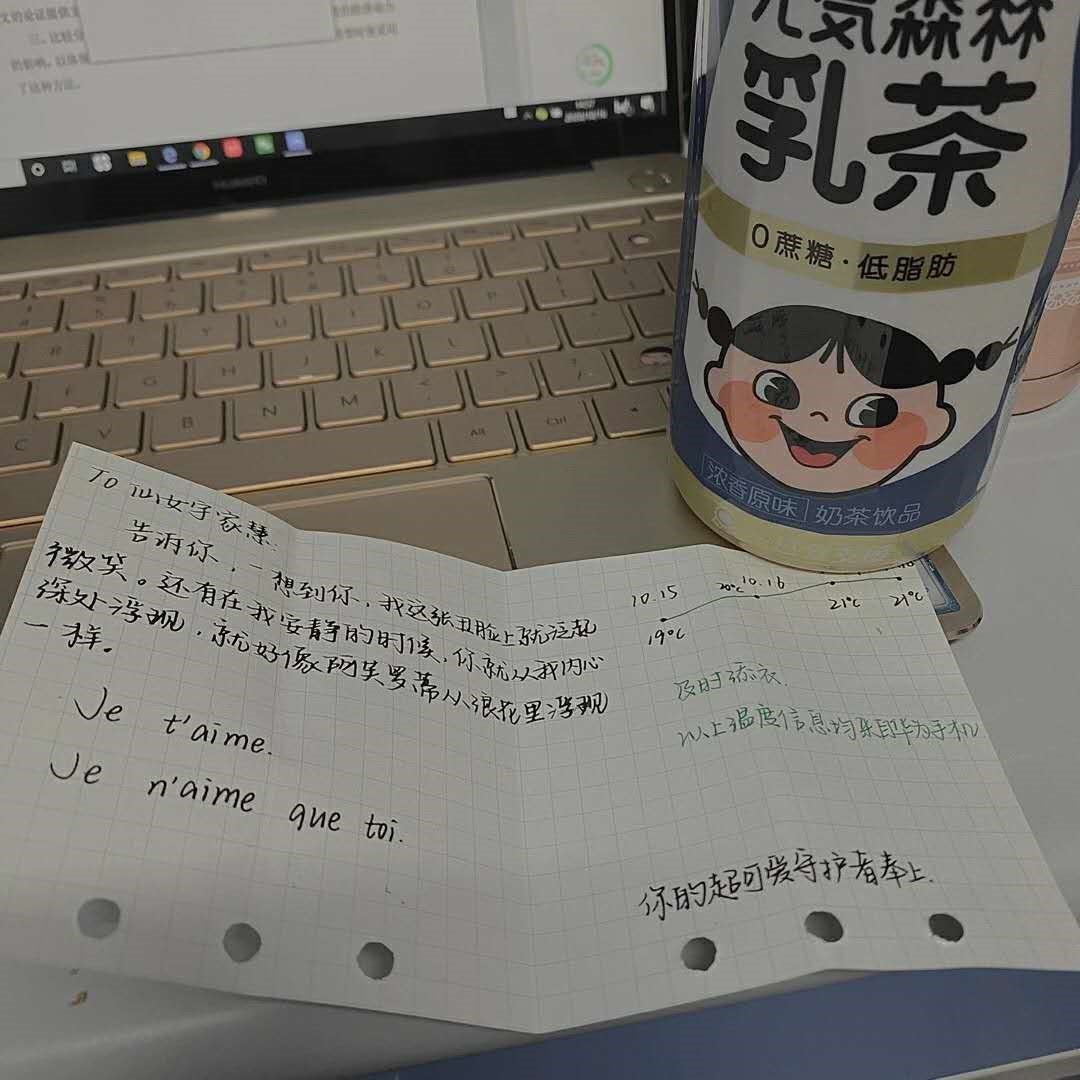 文的论证提供支
三、比较分
的影响。以体现
了这种方法。
HUAWEI
元气森林
乳茶
0蔗糖·低脂肪
浓香原味 奶茶饮品
R
T
Y
U
I
O
P
F
G
H
J
K
L
C
V
B
N
M
Alt
Ctrl
To 仙女字家慧.
告诉你,一想到你,我这张丑脸上就泛起
微笑。还有在我安静的时候,你就从我内心
深处浮现,就好像阿芙罗蒂从浪花里浮现
一样。
Je t'aime.
Je n'aime que toi.
10.15
20℃ 10.16
19℃
21℃ 21℃
及时添衣.
以上温度信息均来自华为手机
你的超可爱守护者奉上.